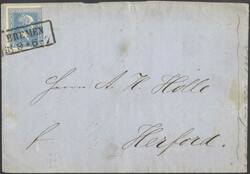 BREMEN
Herrn A. H. Holle
Herford.